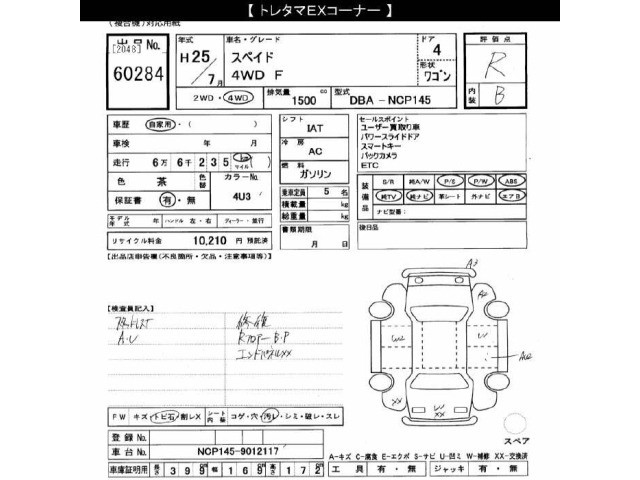 【 トレタマEXコーナー 】
(複合機)対応用紙
出品No.
[2048]
60284
年式
H25/7月
車名・グレード
スペイド
4WD F
ドア
4
形状
ワゴン
2WD・4WD
排気量 1500 cc
型式 DBA-NCP145
評価点
R
内装 B
車歴 自家用・( )
車検 年 月
走行 6万 6千 2 3 5 km マイル
色 茶
色替
カラーNo. 4U3
保証書 有・無
モデル年式 年 ハンドル 左・右 ディーラー・並行
リサイクル料金 10,210 円 預託済
シフト IAT
冷房 AC
燃料 ガソリン
乗車定員 5 名
積載量 kg
総重量 kg
書類期限 月 日
セールスポイント
ユーザー買取り車
パワースライドドア
スマートキー
バックカメラ
ETC
装備品
S/R 純A/W P/S P/W ABS
純TV 純ナビ 革シート 外ナビ エアB
ナビ型番:
後日品
【出品店申告欄(不良箇所・欠品・注意事項等)】
【検査員記入】
A・U
修複
エンドパネルXX
A3
A2
W2
W
XX
XX
FW キズ・トビ石・割レX シート内装 コゲ・穴・汚レ・シミ・破レ・スレ
スペア
登録No.
車台No. NCP145-9012117
A-キズ C-腐食 E-エクボ S-サビ U-凹ミ W-補修 XX-交換済
車庫証明用 長さ 399 幅 169 高さ 172
工具 有・無 ジャッキ 有・無